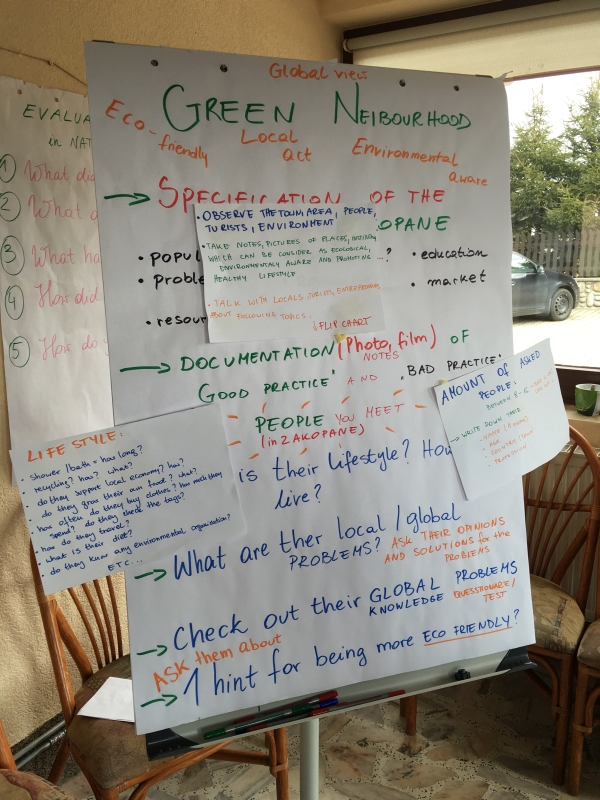 Global view
GREEN NEIBOURHOOD
Eco-friendly
Local act
Environmental aware
→ SPECIFICATION OF THE
OPANE
• popul
• proble
• resour
• education
• market
• OBSERVE THE TOWN, AREA, PEOPLE,
TURISTS, ENVIRONMENT
• TAKE NOTES, PICTURES OF PLACES,
WHICH CAN BE CONSIDER AS ECOLOGICAL,
ENVIRONMENTALY AWARE AND PROMOTING ...?
HEALTHY LIFESTYLE
• TALK WITH LOCALS, TURISTS,
ABOUT FOLLOWING TOPICS.
↓ FLIP CHART
→ DOCUMENTATION (Photo, film) OF
NOTES
GOOD PRACTICE" AND "BAD PRACTICE"
PEOPLE YOU MEET
(in ZAKOPANE)
is their lifestyle? How
live?
→ What are ther local / global
PROBLEMS? ASK THEIR OPINIONS
AND SOLUTIONS for the
PROBLEMS
→ Check out their GLOBAL PROBLEMS
KNOWLEDGE QUESTIONARE/
TEST
ASK them about
→ 1 hint for being more ECO FRIENDLY?
LIFE STYLE:
• shower / bath = how long?
• recycling? how? what?
• do they support local economy? how?
• do they grow their own food? what?
• how often do they buy clothes? How much they
spend? do they check the tags?
• how do they travel?
• what is their diet?
• do they know any environmental organisation?
ETC...
AMOUNT OF ASKED
PEOPLE:
BETWEEN 8-12
→ WRITE DOWN THEIR
• AGE
• PROFESSION
EVALUA
in NAT
1 What did
2 What d
3 What ha
4 How did
5 How do y